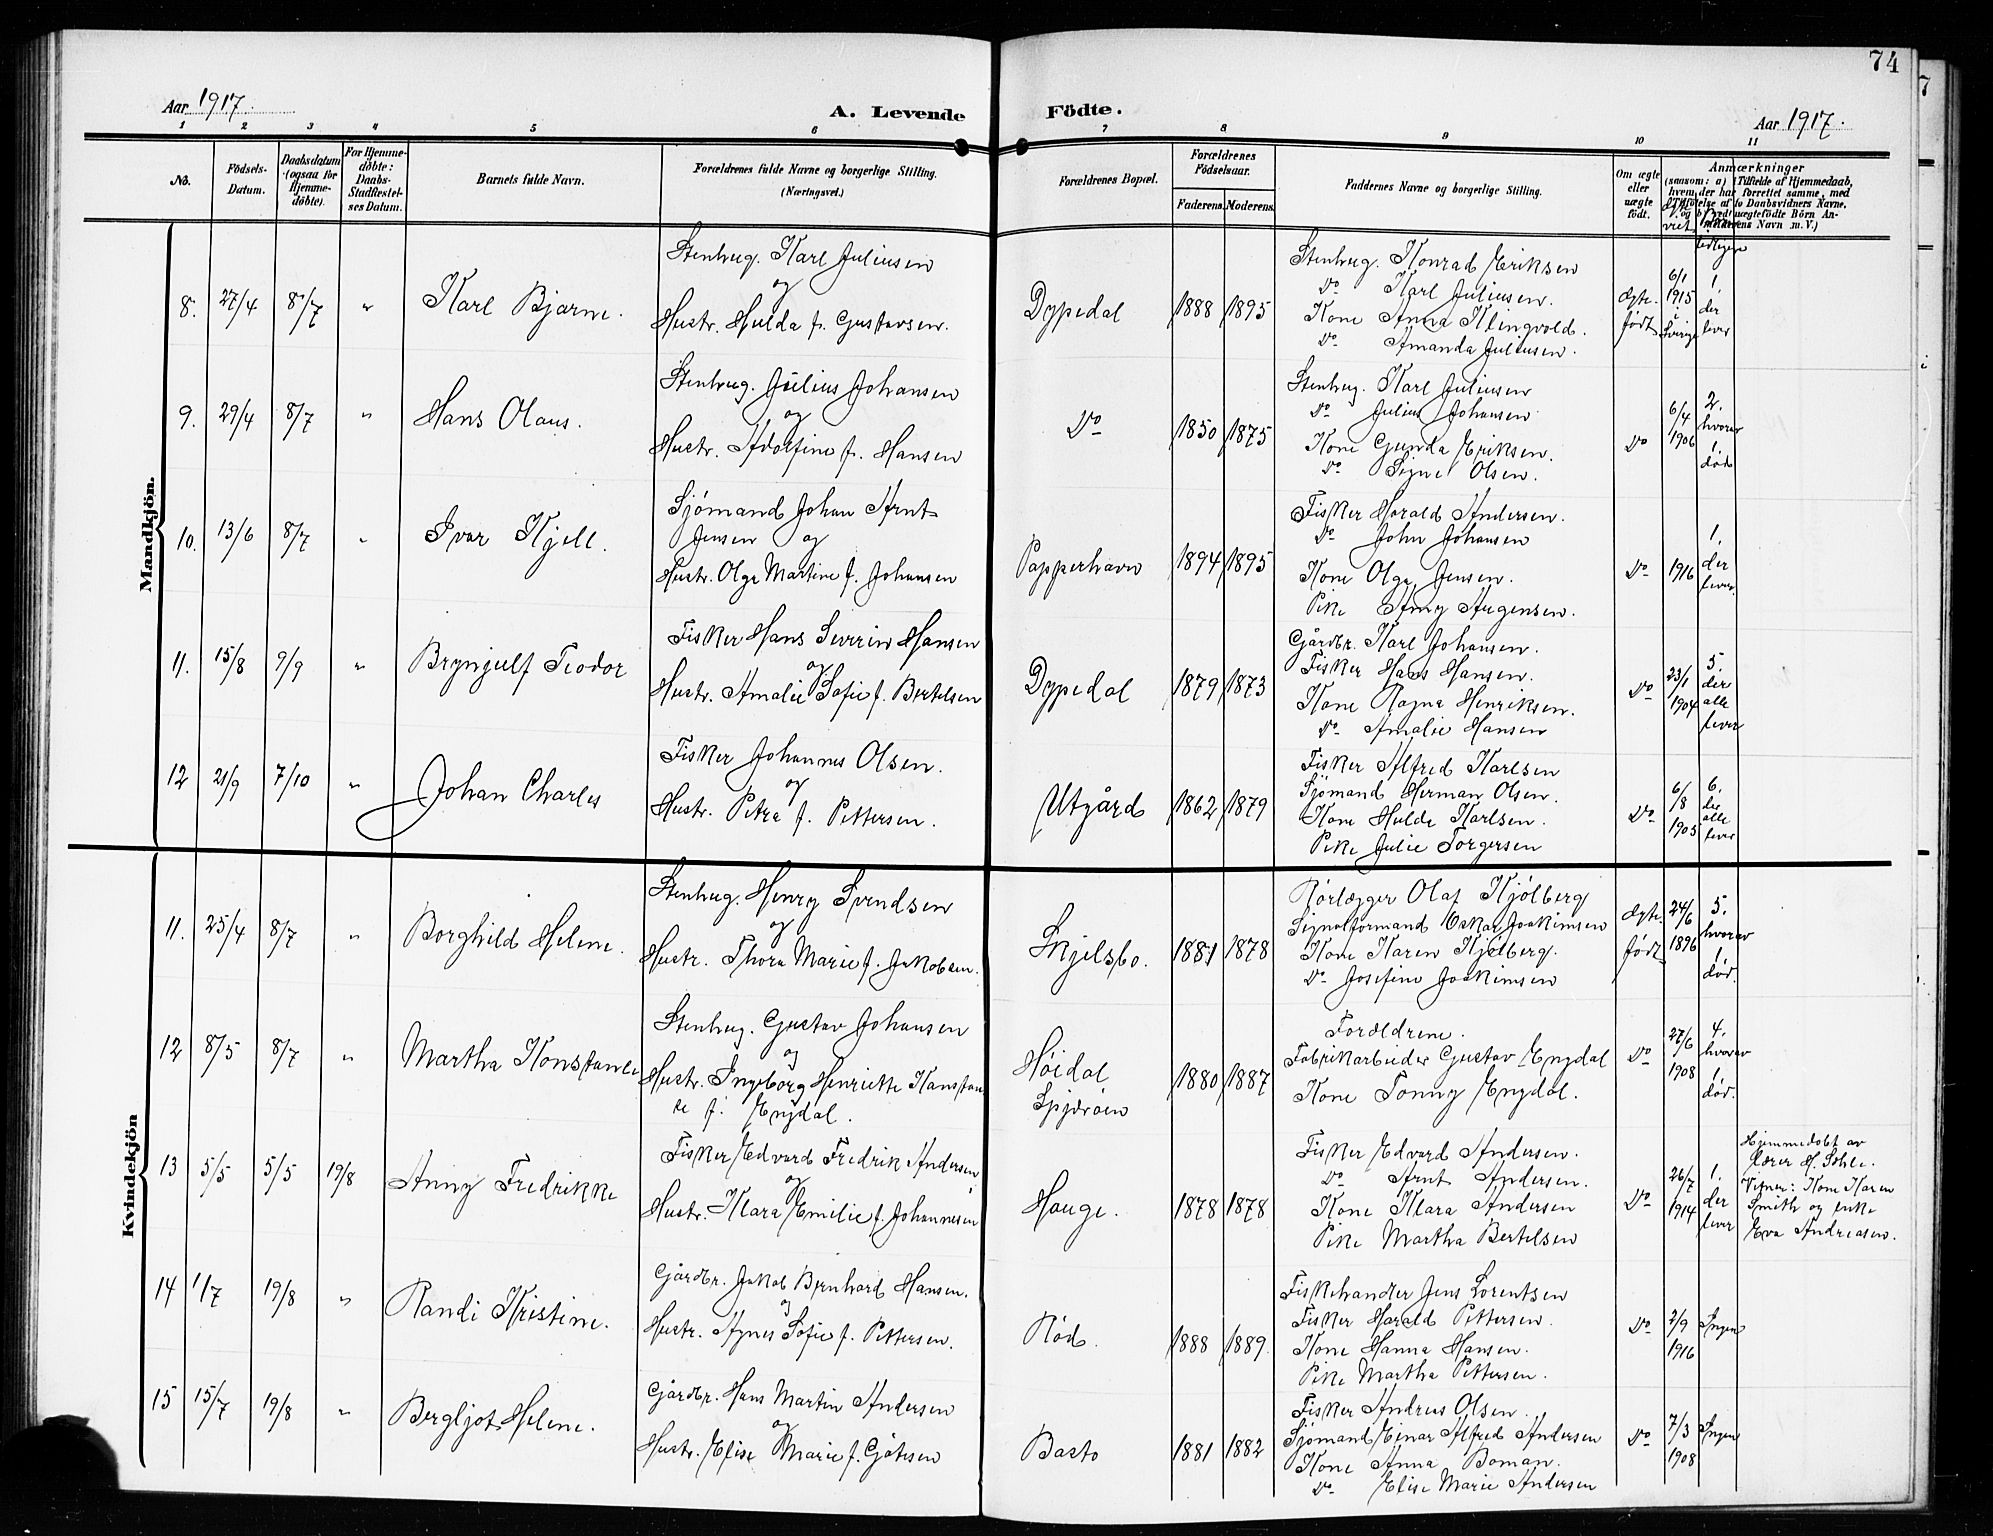 74
Aar 1917.
A. Levende Födte.
Aar 1917.
1 2 3 4 5 6 7 8 9 10 11
No.
Födsels-Datum.
Daabsdatum (ogsaa for Hjemme-döbte).
For Hjemme-döbte: Daabs-Stadfæstel-ses Datum.
Barnets fulde Navn.
Forældrenes fulde Navne og borgerlige Stilling. (Næringsvei.)
Forældrenes Bopæl.
Forældrenes Födselsaar.
Faderens. Moderens.
Faddernes Navne og borgerlige Stilling.
Om ægte eller uægte födt.
Anmærkninger
(saasom: a) i Tilfælde af Hjemmedaab,
hvem der har forrettet samme, med
Tilföielse af to Daabsvidners Navne,
Mandkjön.
8. 27/4 8/7 " Karl Bjarne.
Stenhug. Karl Juliusen
og
Hustr. Hulda f. Gustavsen.
Dypedal 1888 1895
Stenhug. Konrad Eriksen
Do Karl Juliusen.
Kone Anna Klingvold.
Do Amanda Juliusen.
Ægte født
6/1 1915 i Sverige
1. der lever
9. 29/4 8/7 " Hans Olaus.
Stenhug. Julius Johansen
og
Hustr. Adolfine f. Hansen
Do 1850 1875
Stenhug. Karl Juliusen
Do Julius Johansen
Kone Gunda Eriksen.
Do Signe Olsen.
Do 6/4 1906
2. hvorav 1 død
10. 13/6 8/7 " Ivar Kjell.
Sjömand Johan Arnt
Jensen og
Hustr. Olga Martine f. Johansen
Papperhavn 1894 1895
Fisker Harald Andersen.
Do John Johansen
Kone Olga Jensen.
Pike Amy Augensen.
Do 1916
1. der lever.
11. 15/8 9/9 " Brynjulf Teodor
Fisker Hans Severin Hansen
og
Hustr. Amalie Sofie f. Bertelsen
Dypedal 1879 1873
Gårdbr. Karl Johansen.
Fisker Hans Hansen.
Kone Ragna Henriksen.
Do Amalie Hansen
Do 23/1 1904
5. der alle lever
12 21/9 7/10 " Johan Charles
Fisker Johannes Olsen.
og
Hustr. Petra f. Pettersen.
Utgård 1862 1879
Fisker Alfred Karlsen
Sjömand Herman Olsen.
Kone Hulda Karlsen.
Pike Julie Torgersen
Do 6/8 1905
6. der alle lever
Kvindekjön
11. 25/4 8/7 " Borghild Helene.
Stenhug. Henry Svendsen
og
Hustr. Thora Marie f. Jakobsen.
Skjelsbo. 1881 1878
Rörlægger Olaf Kjölberg
Signalformand Oskar Joakimsen
Kone Karen Kjölberg.
Do Josefine Joakimsen
Ægte født
24/6 1896
5. hvorav 1 død.
12 8/5 8/7 " Martha Konstance
Stenhug. Gustav Johansen
og
Hustr. Ingeborg Henriette Konstan-
ce f. Engdal.
Höidal Spjæröen 1880 1887
Forældrene.
Fabrikarbeider Gustav Engdal
Kone Tonny Engdal.
Do 27/6 1908
4. hvorav 1 død.
13 5/5 5/5 19/8 Anny Fredrikke
Fisker Edvard Fredrik Andersen
og
Hustr. Klara Emilie f. Johannesen
Hauge. 1878 1878
Fisker Edvard Andersen.
Do Arnt Andersen.
Kone Klara Andersen
Pike Martha Bertelsen
Do 26/7 1914
1. der lever
Hjemmedøbt av
Lærer H. Sohle.
Vitner: Kone Karen
Smith og enke
Eva Andreasen.
14 1/7 19/8 " Randi Kristine.
Gårdbr. Jakob Bernhard Hansen.
og
Hustr. Agnes Sofie f. Pettersen.
Röd. 1888 1889.
Fiskehandler Jens Lorentsen
Fisker Harald Pettersen.
Kone Hanna Hansen.
Pike Martha Pettersen.
Do 2/9 1916
Ingen
15 15/7 19/8 " Bergljot Helene.
Gårdbr. Hans Martin Andersen
og
Hustr. Elise Marie f. Gjötesen
Basto 1881 1882
Fisker Andreas Olsen.
Sjömand Einar Alfred Andersen
Kone Anna Boman.
Do Elise Marie Andersen
Do 7/3 1908
Ingen